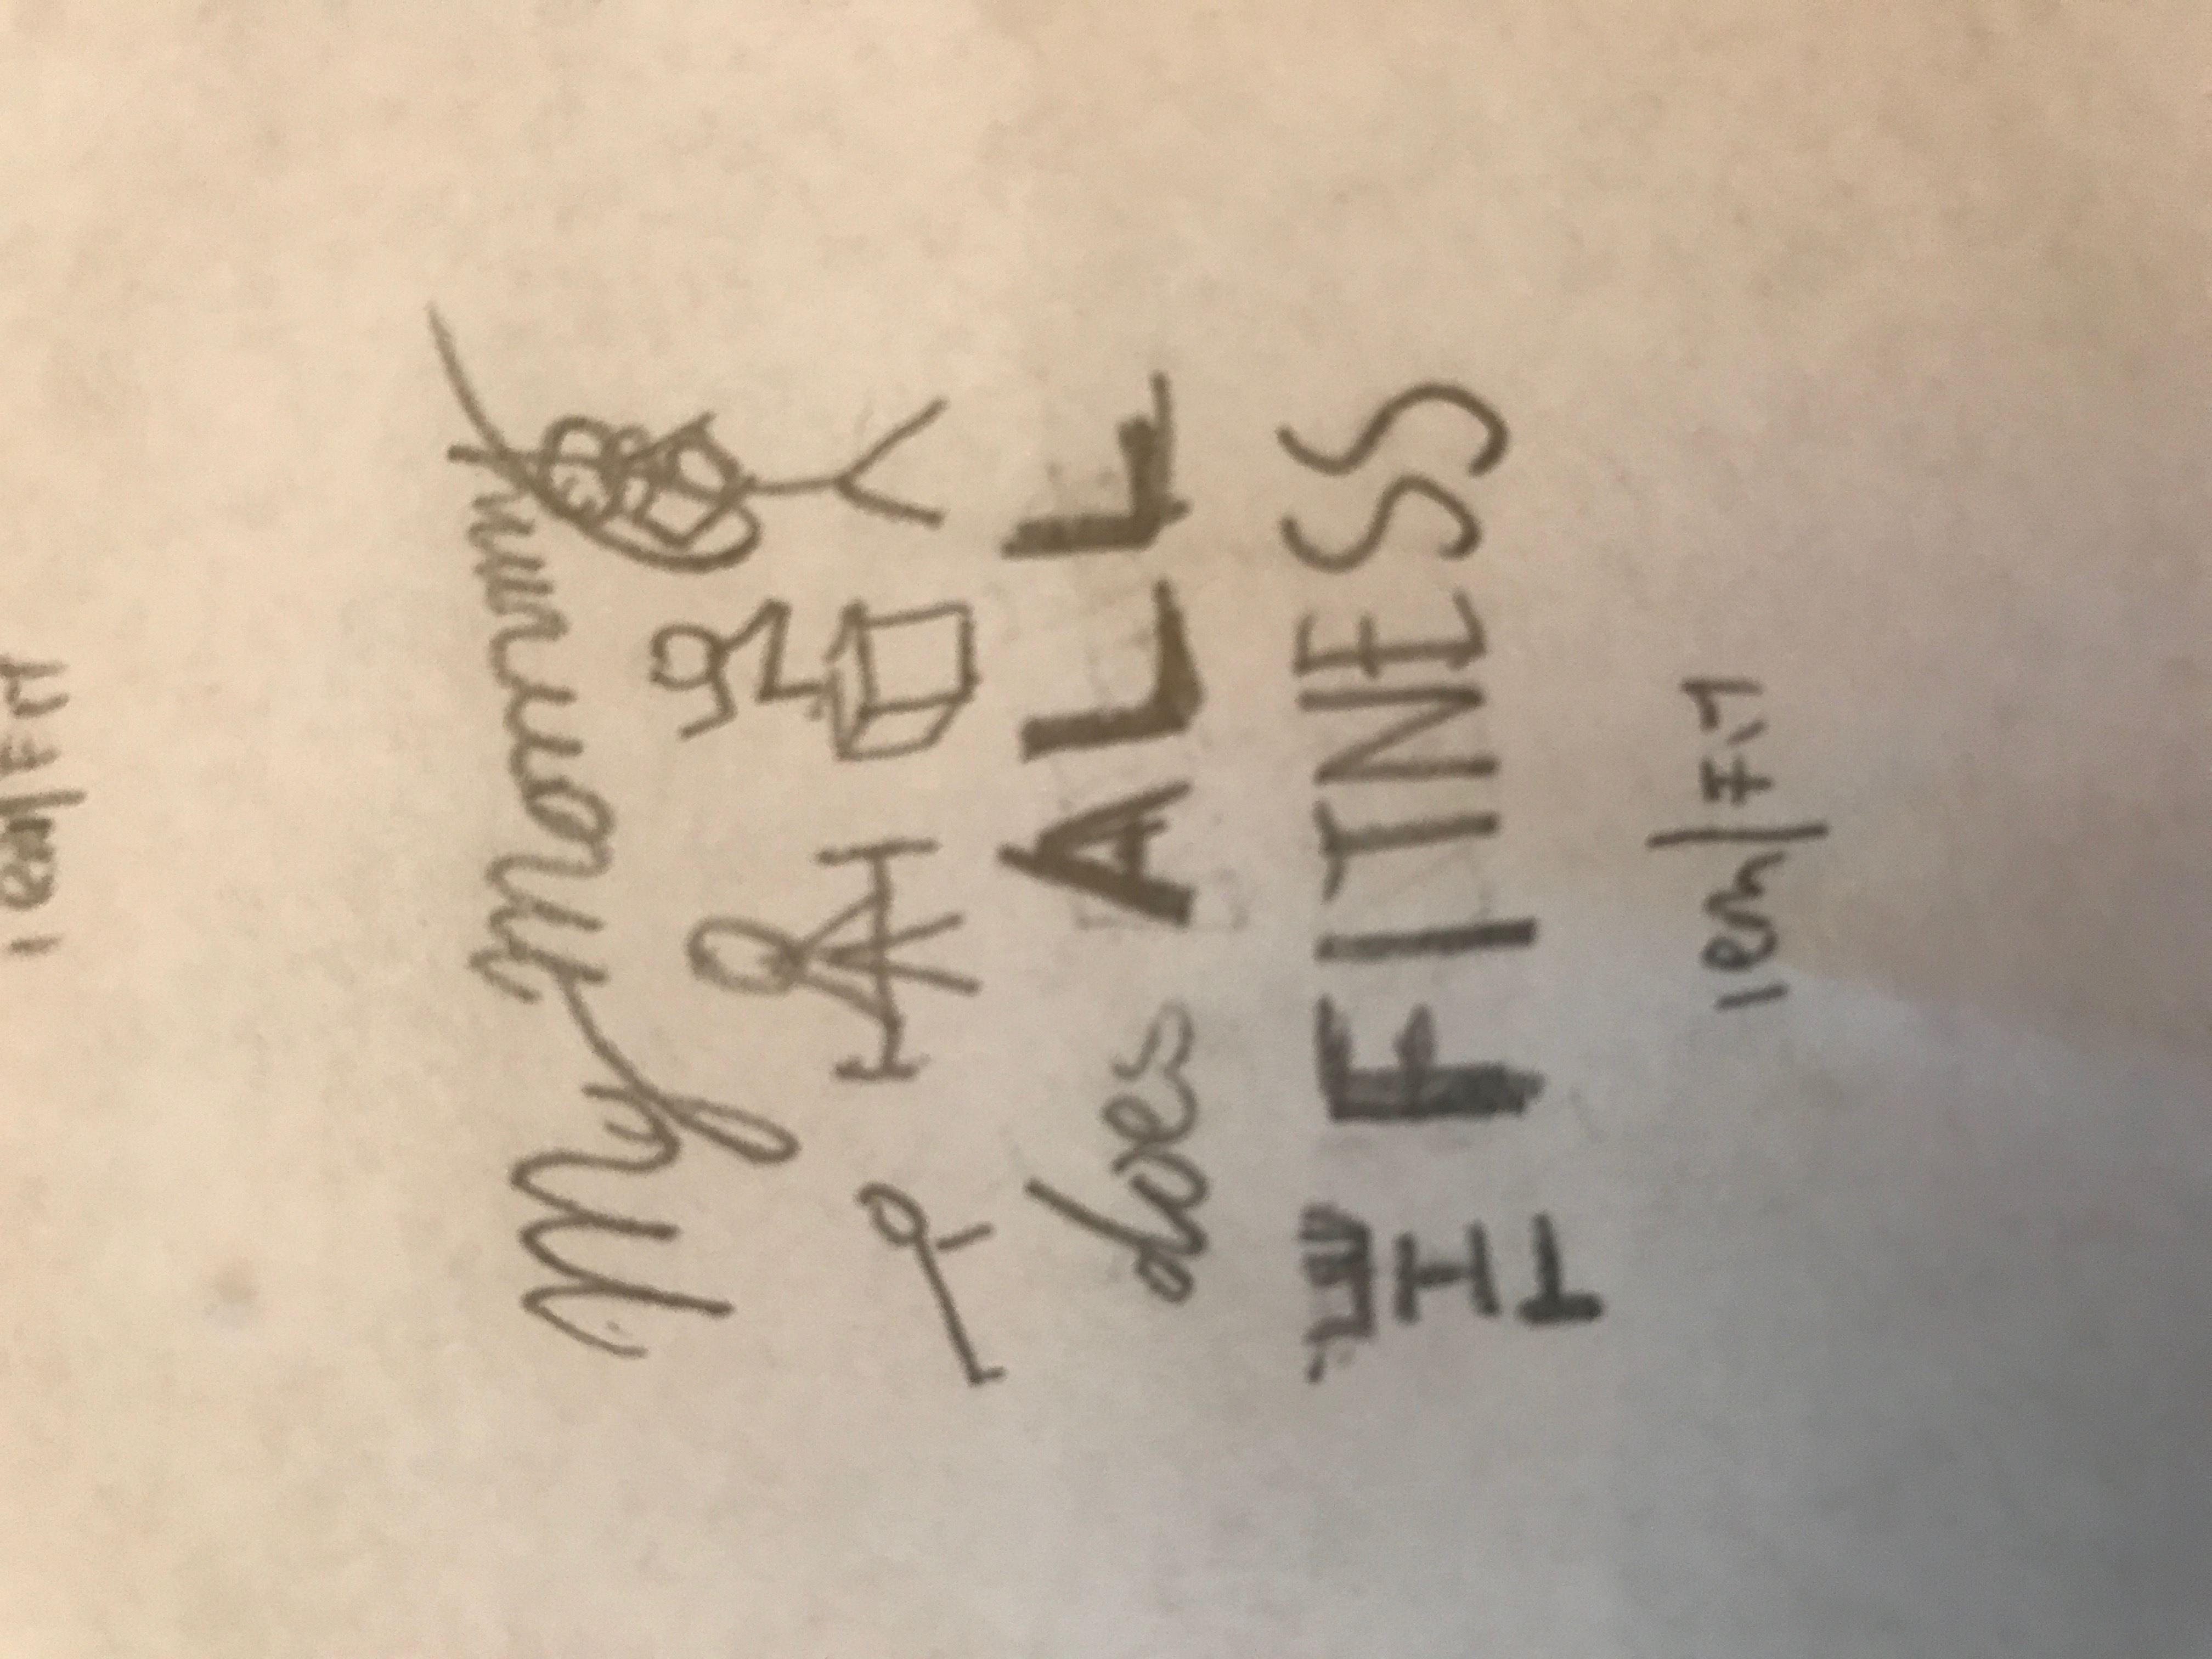 1em/FIT
My Mommy
does ALL
THE FITNESS
1em/FIT